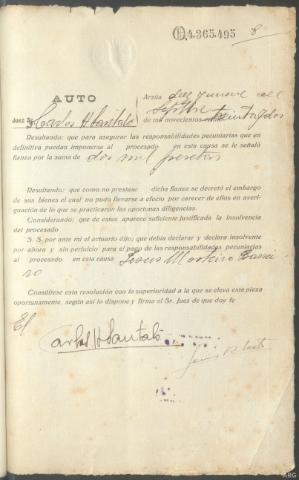 4.365.495
AUTO
Arzúa diez y nueve de
Septbre
Juez Sr. Carlos H Santaló
de mil novecientos treinta y dos
Resultando: que para asegurar las responsabilidades pecuniarias que en
definitiva puedan imponerse al procesado en esta causa se le señaló
fianza por la suma de dos mil pesetas
Resultando: que como no prestase dicha fianza se decretó el embargo
de sus bienes el cual no pudo llevarse a efecto por carecer de ellos en averi-
guación de lo que se practicaron las oportunas diligencias.
Considerando: que de estos aparece suficiente justificada la insolvencia
del procesado
S. S. por ante mí el actuario dijo: que debía declarar y declara insolvente
por ahora y sin perjuicio para el pago de las responsabilidades pecuniarias
al procesado en esta causa Jesus Monteiro
Consúltese esta resolución con la superioridad a la que se eleve esta pieza
oportunamente. según así lo dispone y firma el Sr. Juez de que doy fe
Carlos H Santaló
ARG